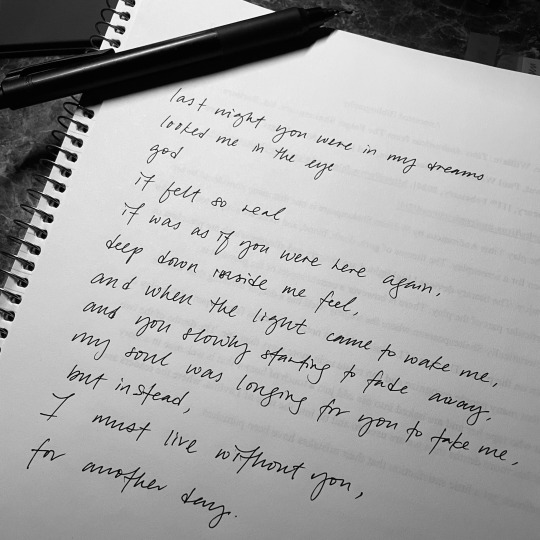 last night you were in my dreams
looked me in the eye
god
it felt so real
it was as if you were here again,
deep down inside me feel,
and when the light came to wake me,
and you slowly starting to fade away,
my soul was longing for you to take me,
but instead,
I must live without you,
for another day.